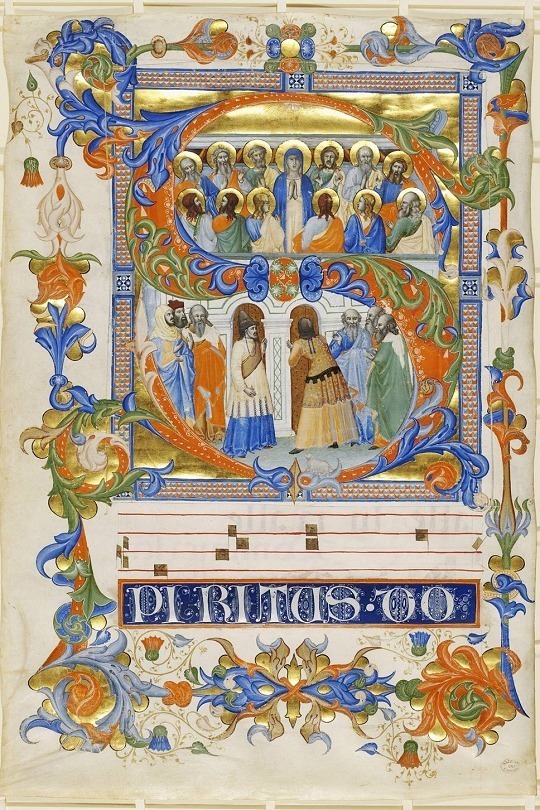 S
PIRITUS · DO